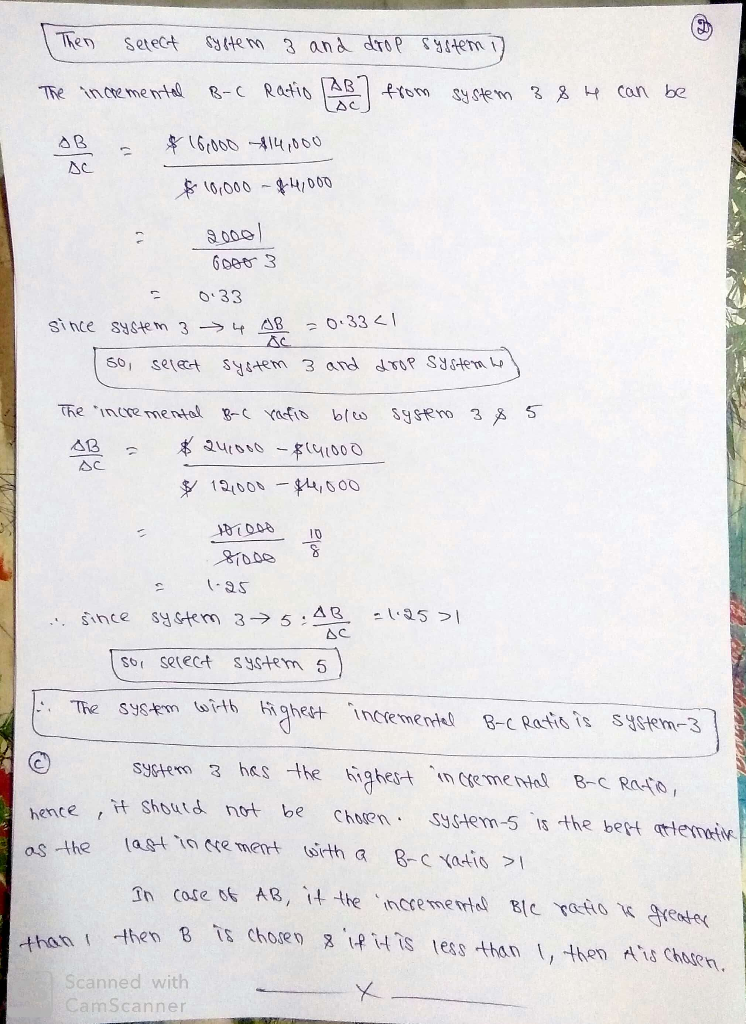 ②
Then select system 3 and drop system 1
The incremental B-C Ratio [ΔB/ΔC] from system 3 & 4 can be
ΔB/ΔC = $16,000 - $14,000 / $10,000 - $4,000
= 2000 1 / 6000 3
= 0.33
since system 3 → 4 ΔB/ΔC = 0.33 < 1
so, select system 3 and drop system 4
The incremental B-C ratio b/w system 3 & 5
ΔB/ΔC = $24,000 - $14,000 / $12,000 - $4,000
= 10,000 / 8,000 10/8
= 1.25
∴ since system 3 → 5 : ΔB/ΔC = 1.25 > 1
so, select system 5
∴ The system with highest incremental B-C Ratio is system-3
ⓒ system 3 has the highest incremental B-C Ratio,
hence, it should not be chosen. system-5 is the best alternative
as the last increment with a B-C ratio > 1
In case of AB, if the incremental B/C ratio is greater
than 1 then B is chosen & if it is less than 1, then A is chosen.
x
Scanned with
CamScanner